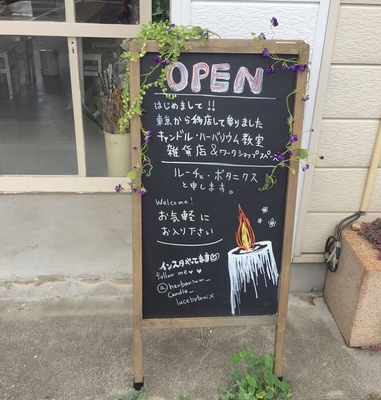 OPEN
はじめまして!!
東京から移店して参りました
キャンドル・ハーバリウム教室
雑貨店&ワークショップスペース
ルーチェ・ボタニクス
と申します。
Welcome!
お気軽に
お入り下さい
インスタやってます♡
follow me♥♥
@herbarium_
candle_
lucebotanix